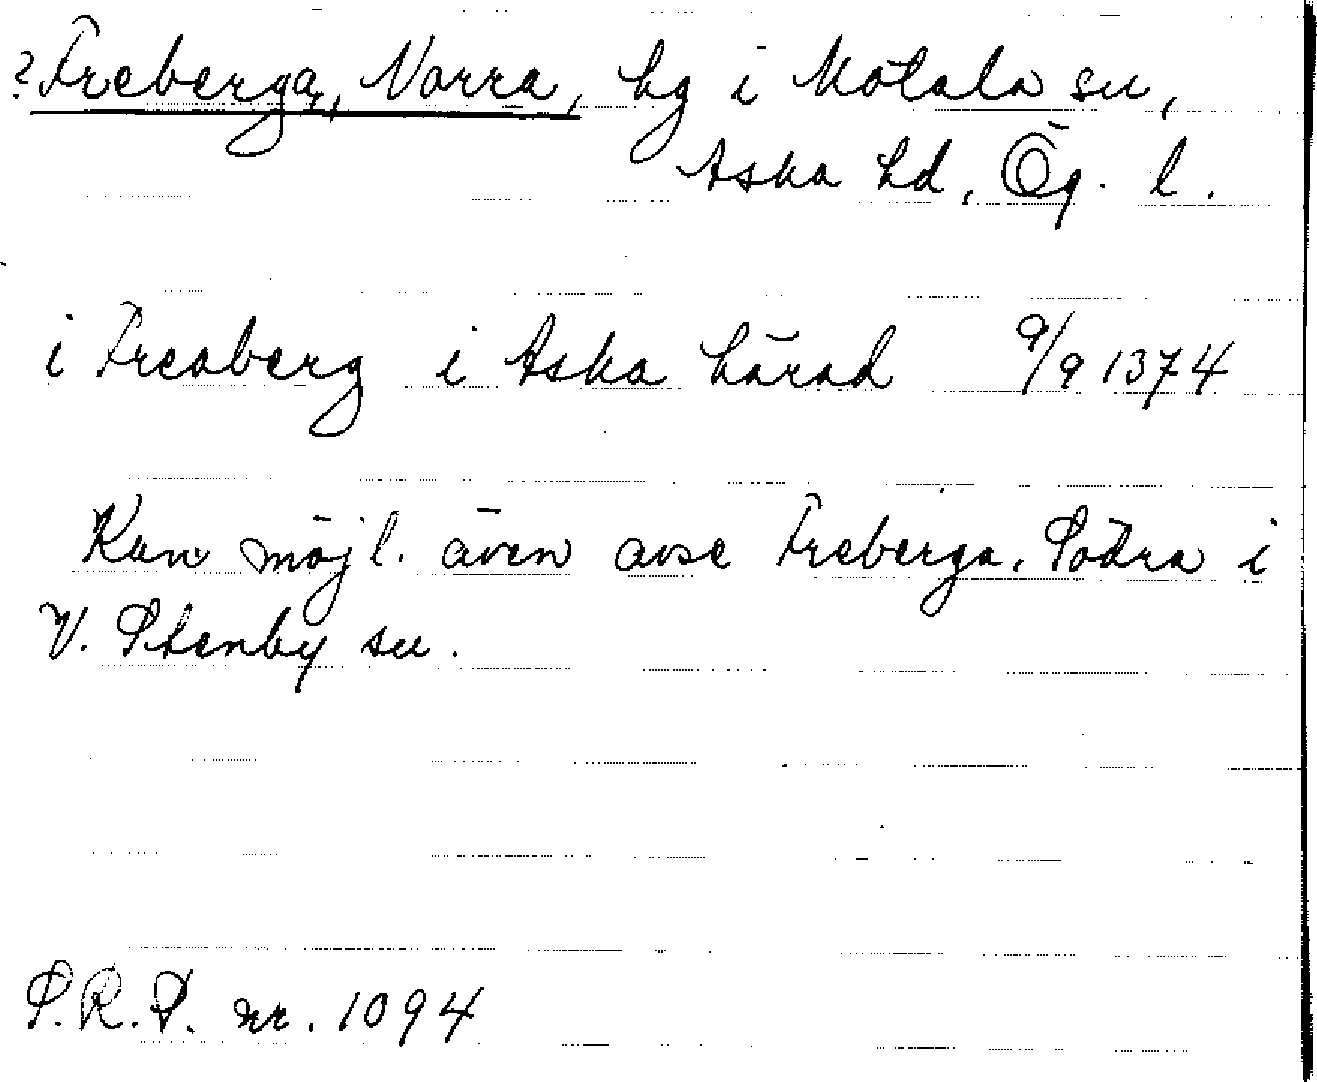 ? Freberga, Norra, hg i Motala sn,
Aska hd, Ög. l.
i Freaberg i Aska härad 9/9 1374
Kan möjl. även avse Freberga, Södra i
V. Stenby sn.
S.R.P. nr. 1094